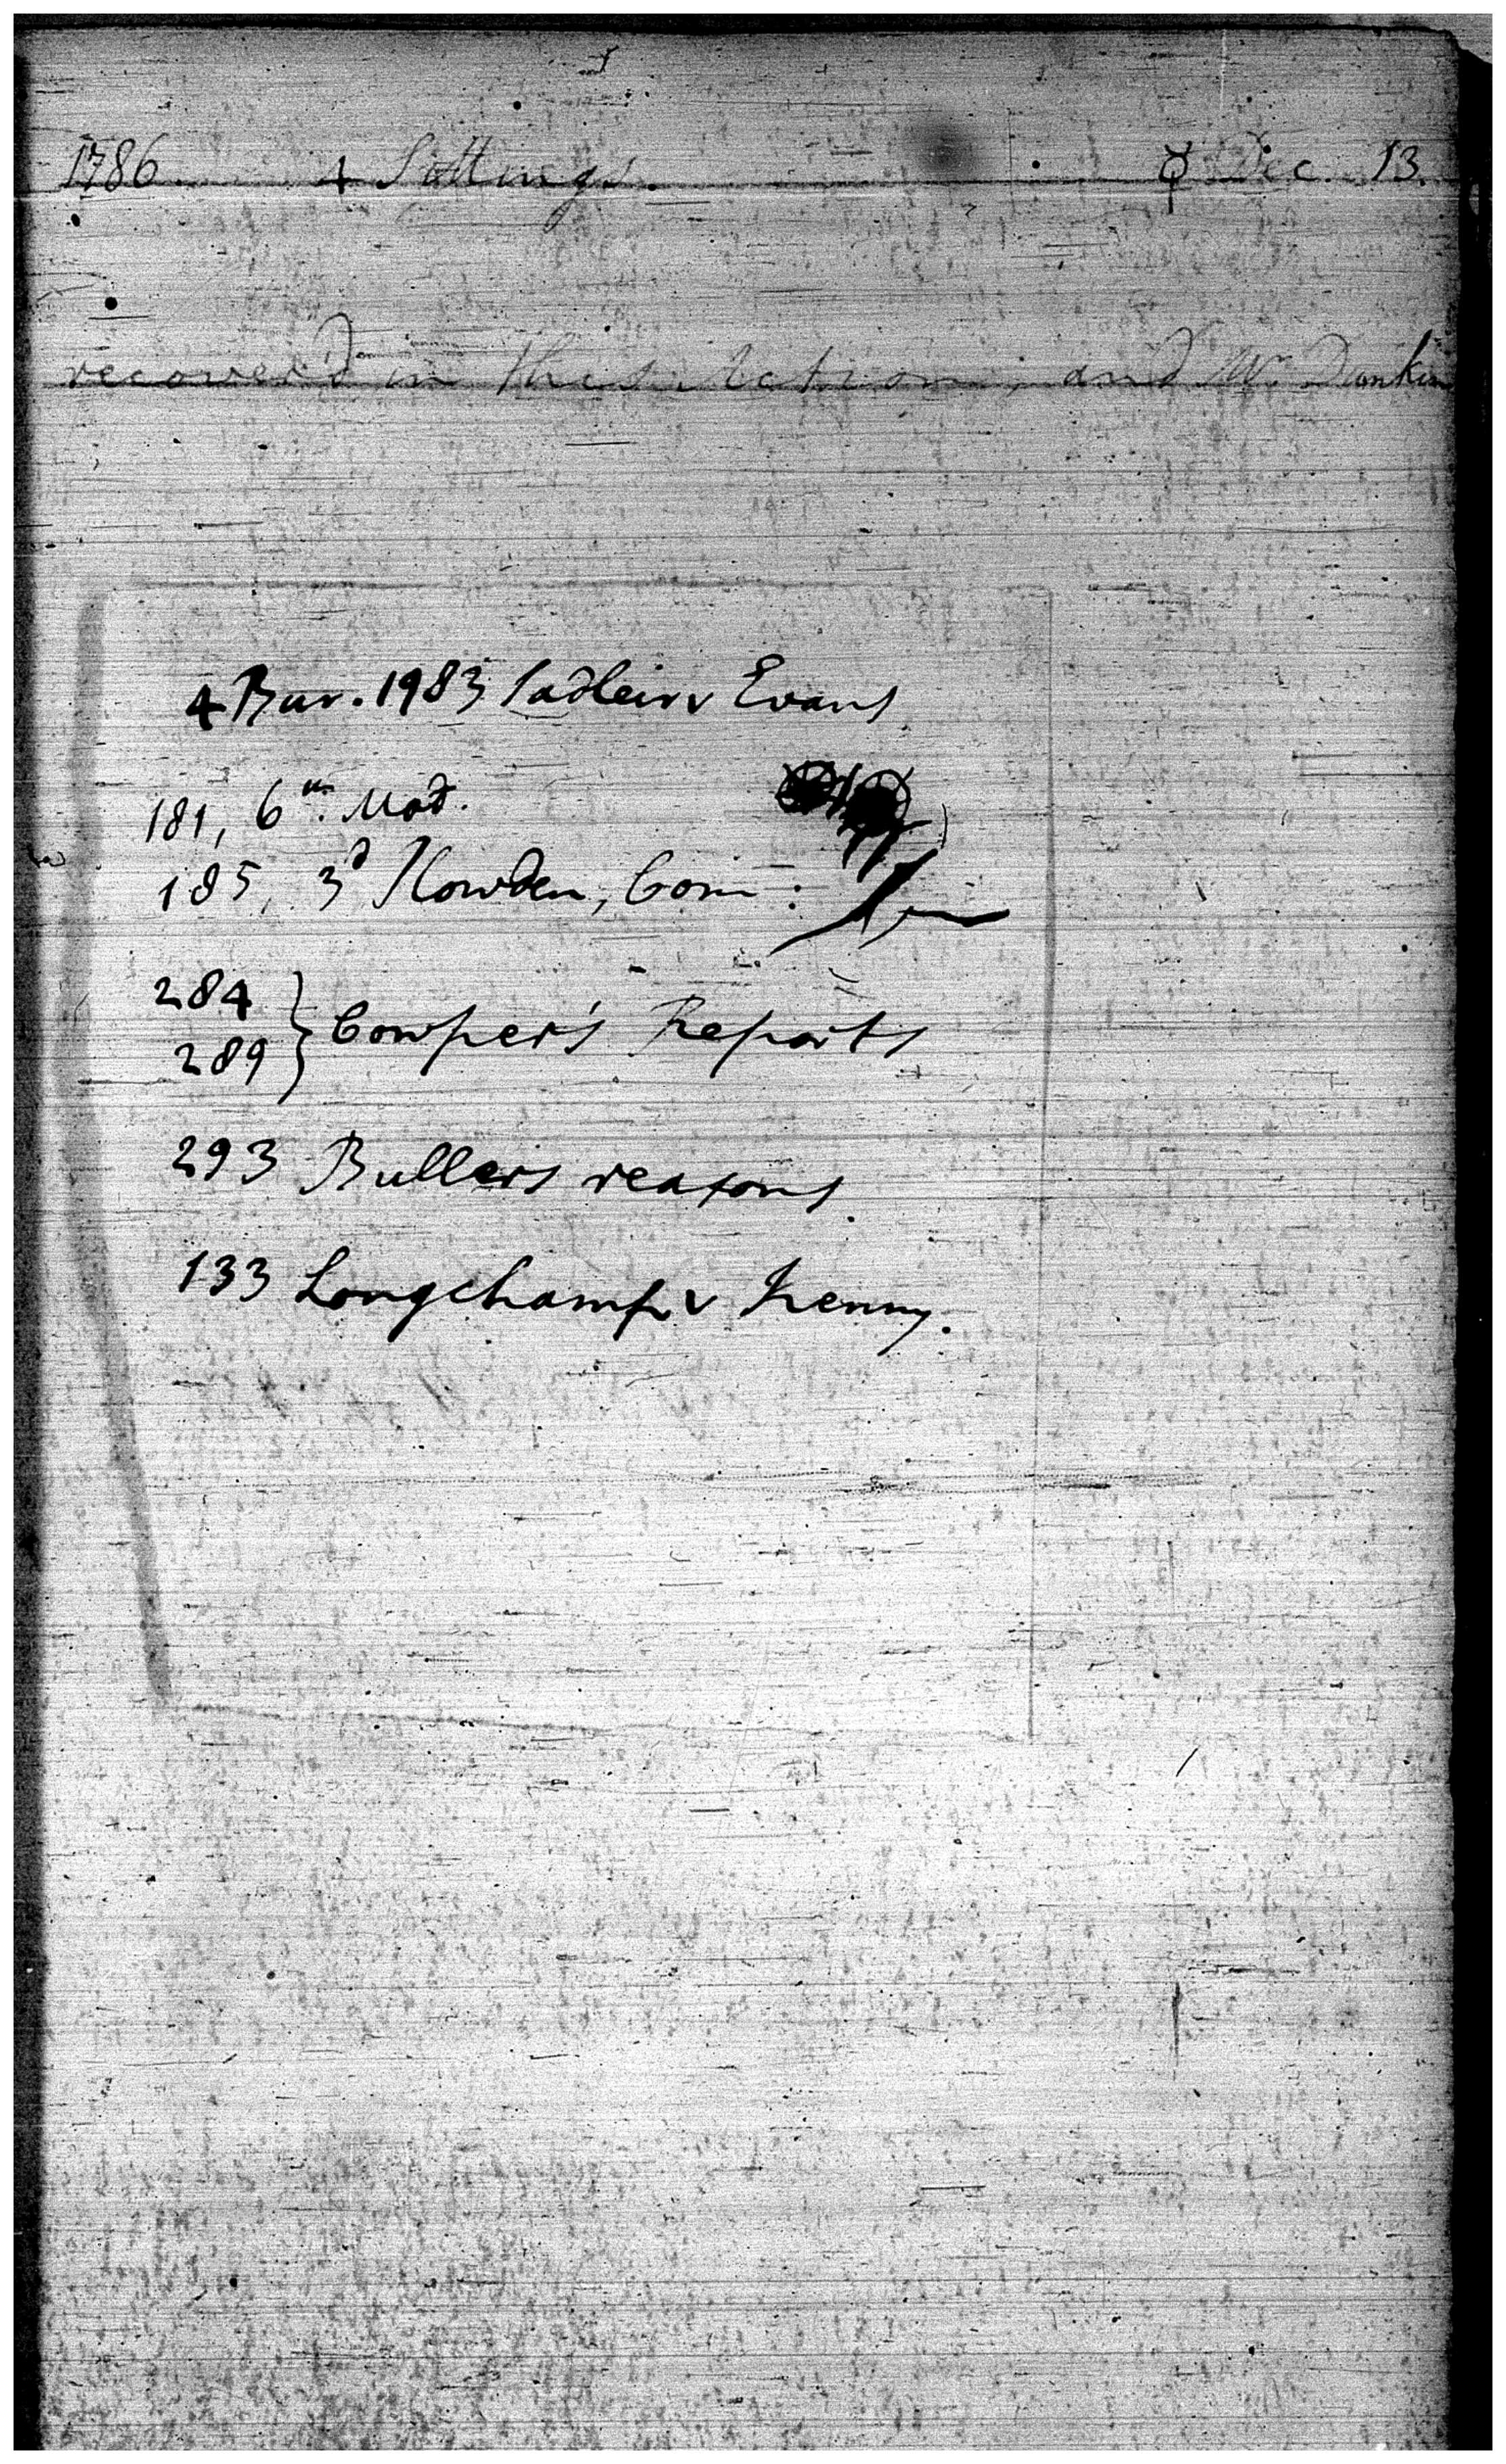 1786. 4 Sittings. ☿ Dec. 13.
recovered in this action, and Mr. Dunkin
4 Bur. 1983 Sadleir v Evans
181, 6th. Mod.
185, 3d Plowden, Com:
284
289 } Cowper's Reports
293 Bullers reasons.
133 Longchamp v Kenny.